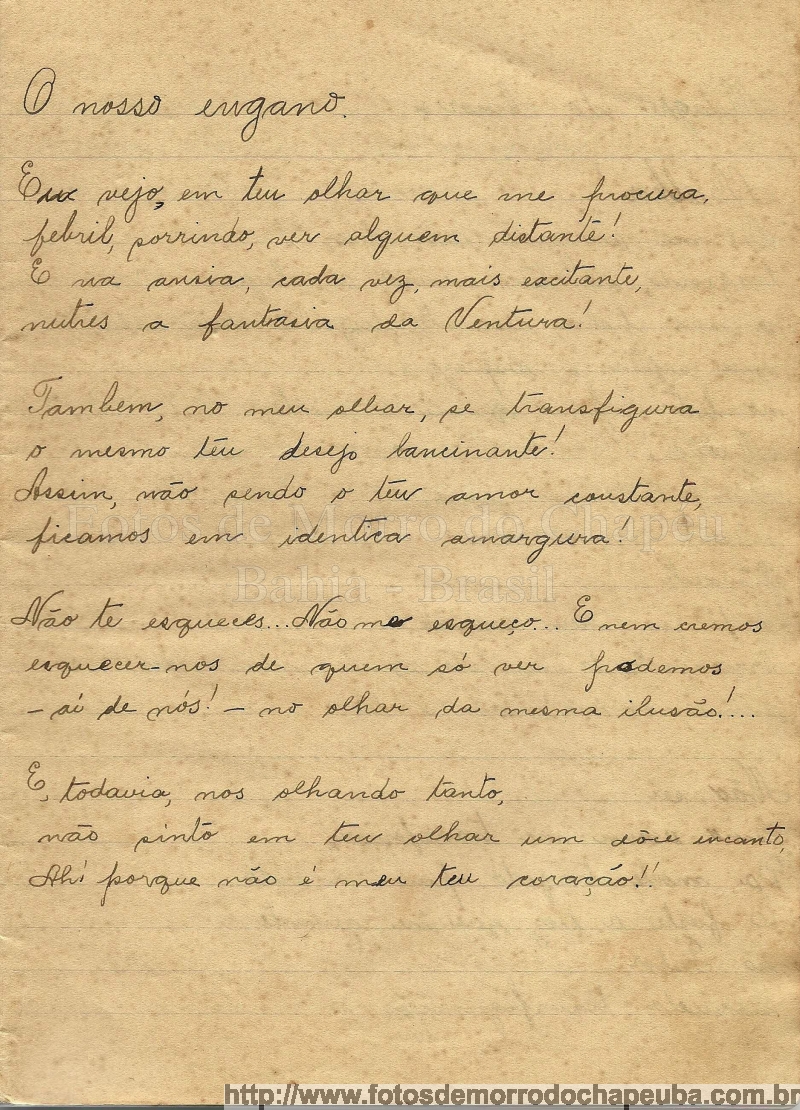 O nosso engano.
Eu vejo, em teu olhar que me procura,
febril, sorrindo, ver alguem distante!
E na ansia, cada vez, mais excitante,
nutres a fantasia da Ventura!
Tambem, no meu olhar, se transfigura
o mesmo teu desejo lancinante!
Assim, não sendo o teu amor constante,
ficamos em identica amargura!
Fotos de Morro do Chapéu
Bahia - Brasil
Não te esqueces... Não me esqueço... E nem cremos
esquecer-nos de quem só ver podemos
- ai de nós! - no olhar da mesma ilusão!...
E, todavia, nos olhando tanto,
não sinto em teu olhar um dôce encanto,
Ah! porque não é meu teu coração!!
http://www.fotosdemorrodochapeuba.com.br